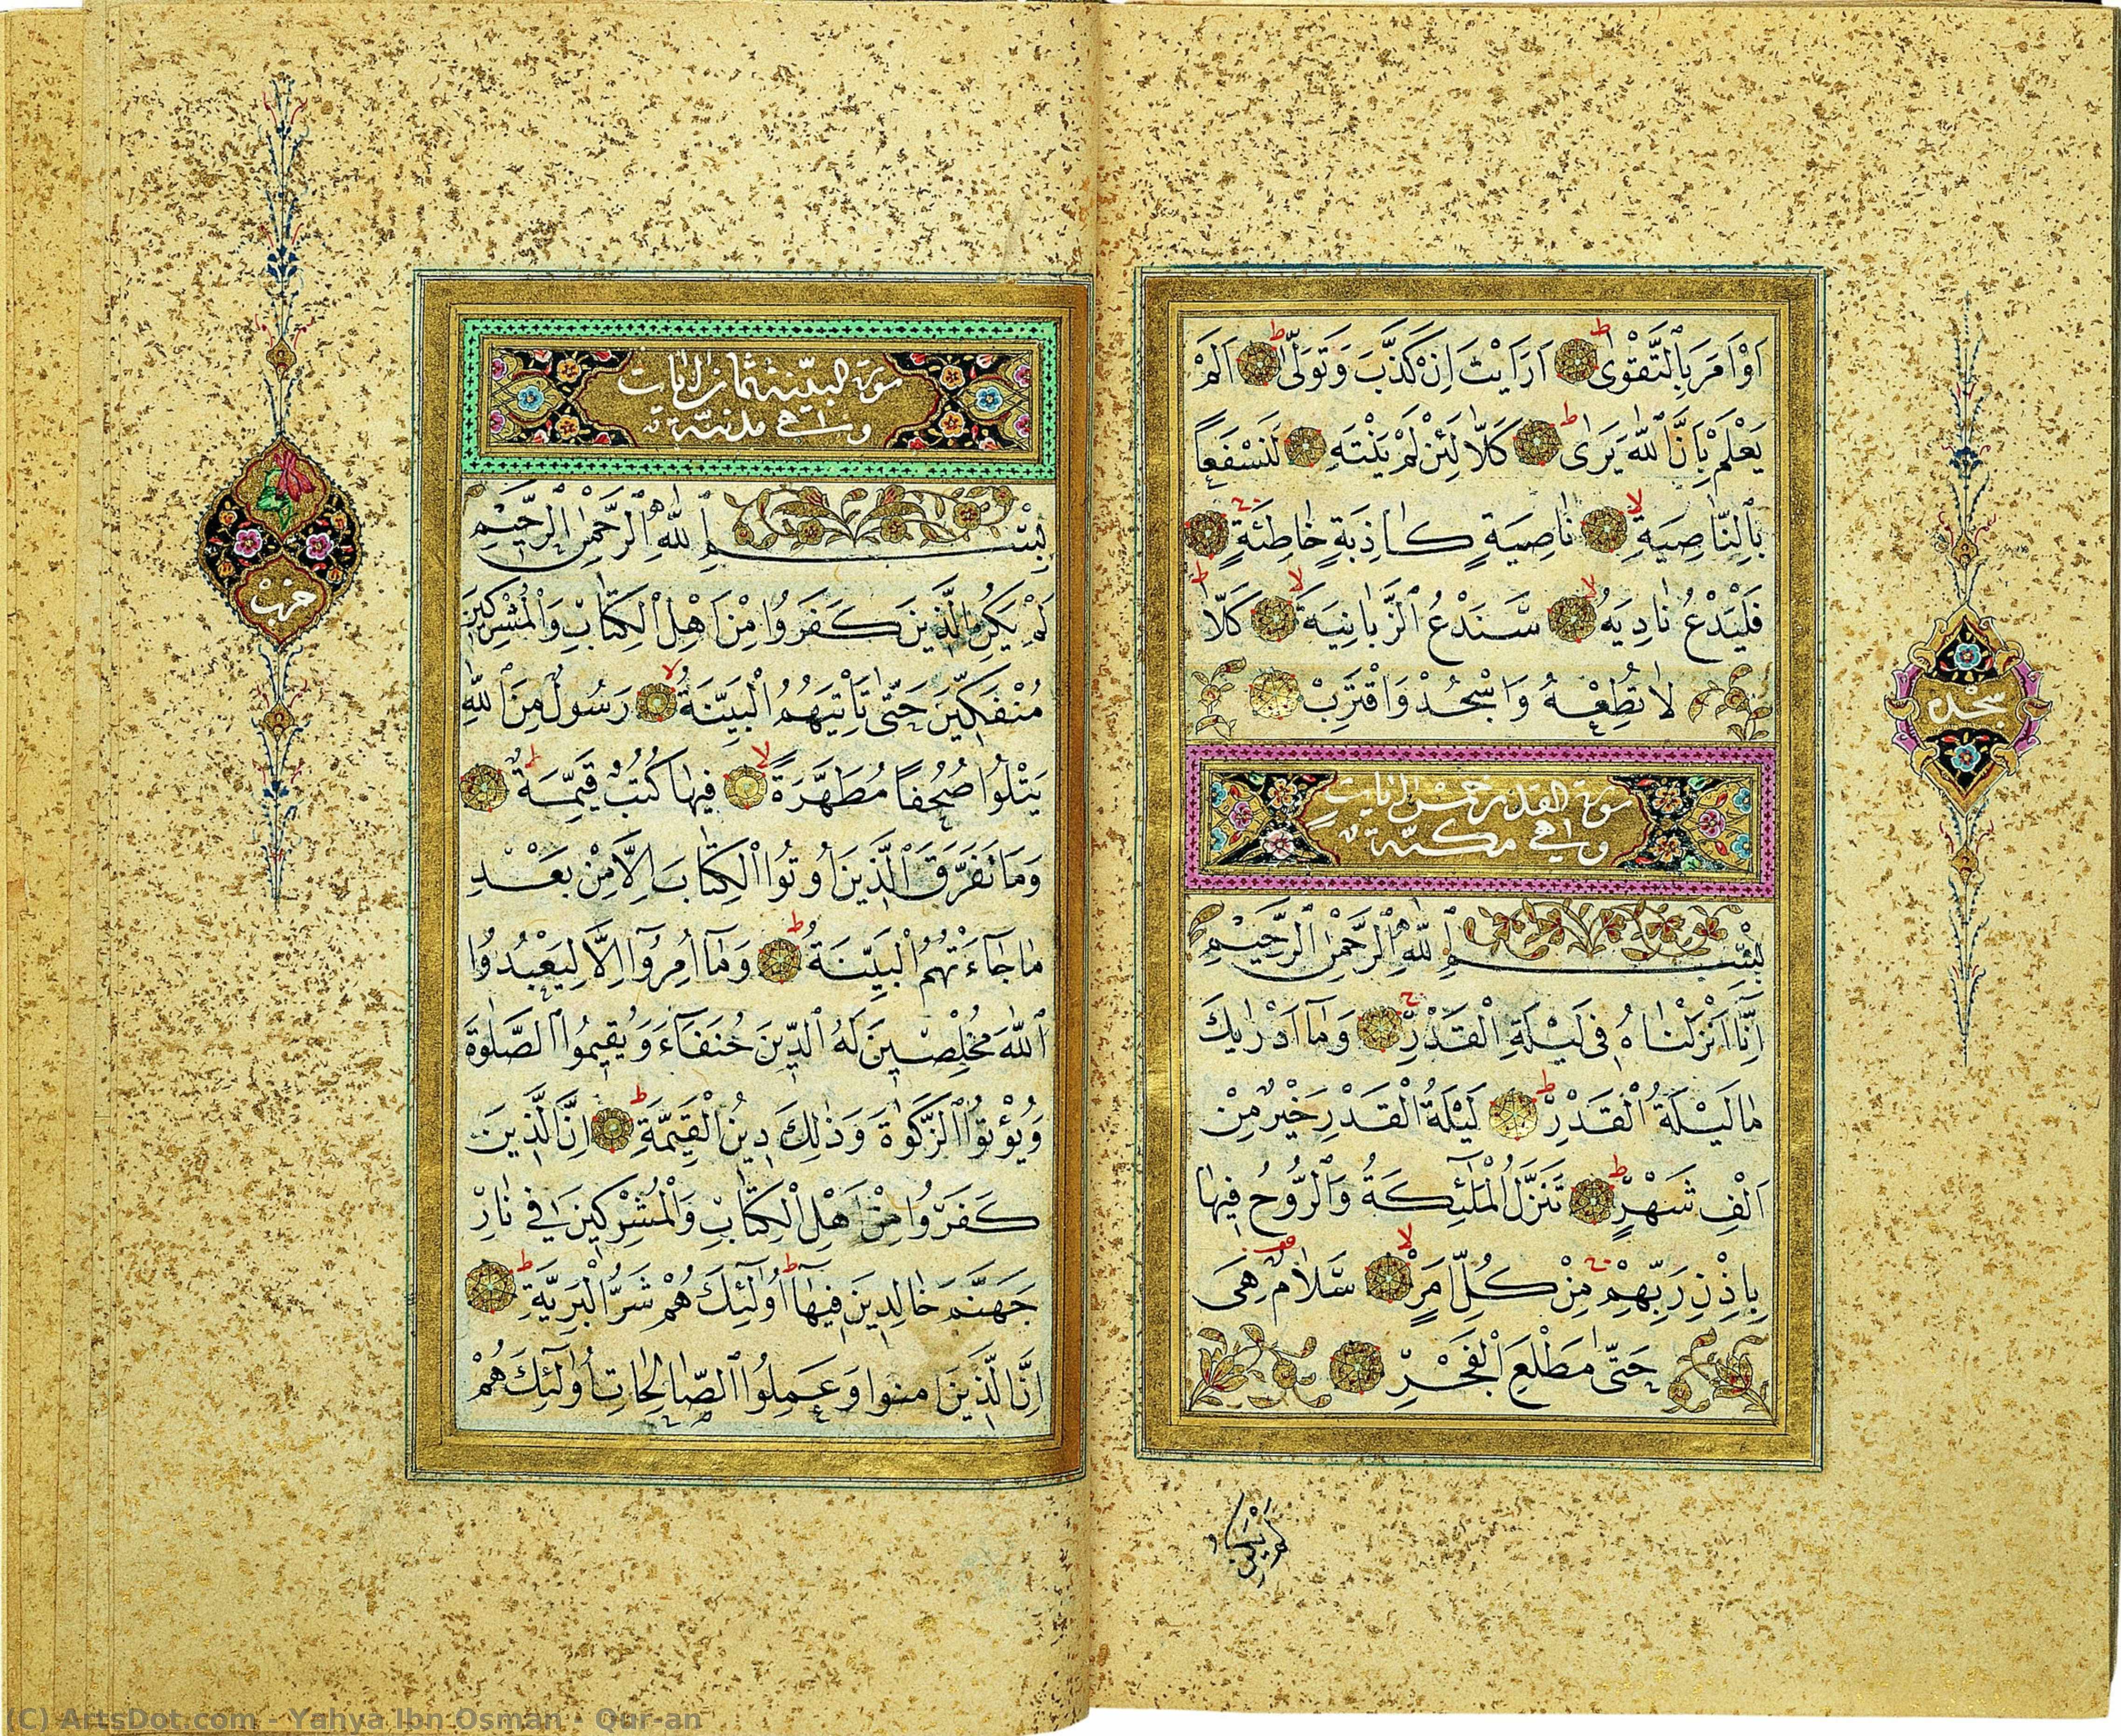 اَوْ اَمَرَ بِالتَّقْوٰى اَرَاَيْتَ اِنْ كَذَّبَ وَتَوَلّٰى اَلَمْ
يَعْلَمْ بِاَنَّ اللّٰهَ يَرٰى كَلَّا لَئِنْ لَمْ يَنْتَهِ لَنَسْفَعًا
بِالنَّاصِيَةِ نَاصِيَةٍ كَاذِبَةٍ خَاطِئَةٍ
فَلْيَدْعُ نَادِيَهُ سَنَدْعُ الزَّبَانِيَةَ كَلَّا
لَا تُطِعْهُ وَاسْجُدْ وَاقْتَرِبْ
سجده
سورة القدر خمس ايات
وهي مكية
بِسْمِ اللّٰهِ الرَّحْمٰنِ الرَّحِيمِ
اِنَّا اَنْزَلْنَاهُ فِى لَيْلَةِ الْقَدْرِ وَمَا اَدْرٰيكَ
مَا لَيْلَةُ الْقَدْرِ لَيْلَةُ الْقَدْرِ خَيْرٌ مِنْ
اَلْفِ شَهْرٍ تَنَزَّلُ الْمَلٰٓئِكَةُ وَالرُّوحُ فِيهَا
بِاِذْنِ رَبِّهِمْ مِنْ كُلِّ اَمْرٍ سَلَامٌ هِىَ
حَتّٰى مَطْلَعِ الْفَجْرِ
لم يكن
سورة البينة ثمان ايات
وهي مدنية
بِسْمِ اللّٰهِ الرَّحْمٰنِ الرَّحِيمِ
لَمْ يَكُنِ الَّذِينَ كَفَرُوا مِنْ اَهْلِ الْكِتَابِ وَالْمُشْرِكِينَ
مُنْفَكِّينَ حَتّٰى تَاْتِيَهُمُ الْبَيِّنَةُ رَسُولٌ مِنَ اللّٰهِ
يَتْلُوا صُحُفًا مُطَهَّرَةً فِيهَا كُتُبٌ قَيِّمَةٌ
وَمَا تَفَرَّقَ الَّذِينَ اُوتُوا الْكِتَابَ اِلَّا مِنْ بَعْدِ
مَا جَآءَتْهُمُ الْبَيِّنَةُ وَمَآ اُمِرُوٓا اِلَّا لِيَعْبُدُوا
اللّٰهَ مُخْلِصِينَ لَهُ الدِّينَ حُنَفَآءَ وَيُقِيمُوا الصَّلٰوةَ
وَيُؤْتُوا الزَّكٰوةَ وَذٰلِكَ دِينُ الْقَيِّمَةِ اِنَّ الَّذِينَ
كَفَرُوا مِنْ اَهْلِ الْكِتَابِ وَالْمُشْرِكِينَ فِى نَارِ
جَهَنَّمَ خَالِدِينَ فِيهَآ اُولٰٓئِكَ هُمْ شَرُّ الْبَرِيَّةِ
اِنَّ الَّذِينَ اٰمنوا وَعَمِلُوا الصَّالِحَاتِ اُولٰٓئِكَ هُمْ
حزب
(C) ArtsDot.com - Yahya Ibn Osman - Qur-an